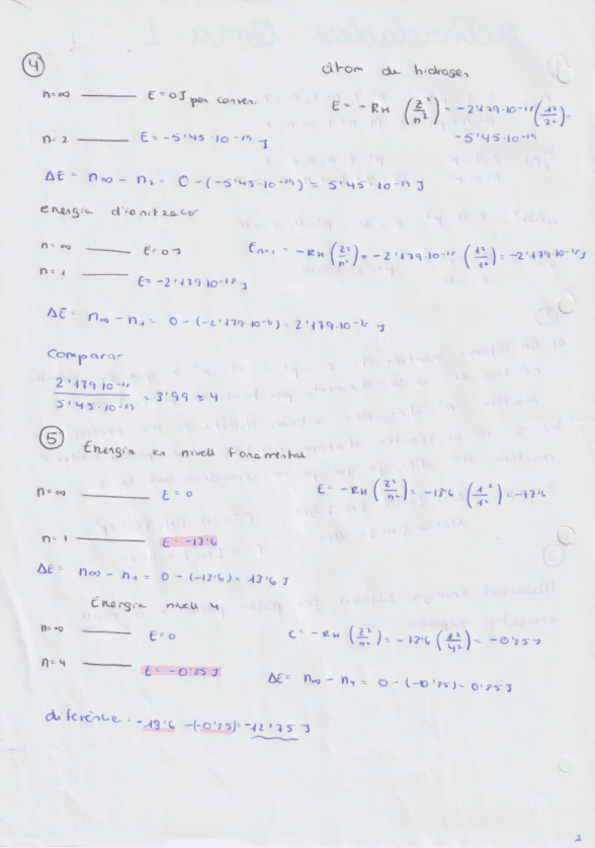 4
àtom de hidrogen
n=∞ E=0J per conveni
E = -RH (Z²/n²) = -2'179·10⁻¹⁸ (1²/2²) =
-5'45·10⁻¹⁹
n=2 E=-5'45·10⁻¹⁹ J
ΔE = n∞ - n₂ = 0-(-5'45·10⁻¹⁹) = 5'45·10⁻¹⁹ J
energia d'ionització
n=∞ E=0J
En=1 = -RH (Z²/n²) = -2'179·10⁻¹⁸ (1²/1²) = -2'179·10⁻¹⁸ J
n=1 E=-2'179·10⁻¹⁸ J
ΔE = n∞ - n₁ = 0-(-2'179·10⁻¹⁸) = 2'179·10⁻¹⁸ J
Comparar
2'179·10⁻¹⁸ / 5'45·10⁻¹⁹ = 3'99 ≈ 4
5 Energia en nivell fonamental
n=∞ E=0
E = -RH (Z²/n²) = -13'6 (1²/1²) = -13'6
n=1 E=-13'6
ΔE = n∞ - n₁ = 0-(-13'6) = 13'6 J
Energia nivell 4
n=∞ E=0
E = -RH (Z²/n²) = -13'6 (1²/4²) = -0'85J
n=4 E=-0'85 J
ΔE = n∞ - n₄ = 0-(-0'85) = 0'85 J
diferència: -13'6 -(-0'85) = -12'75 J
2